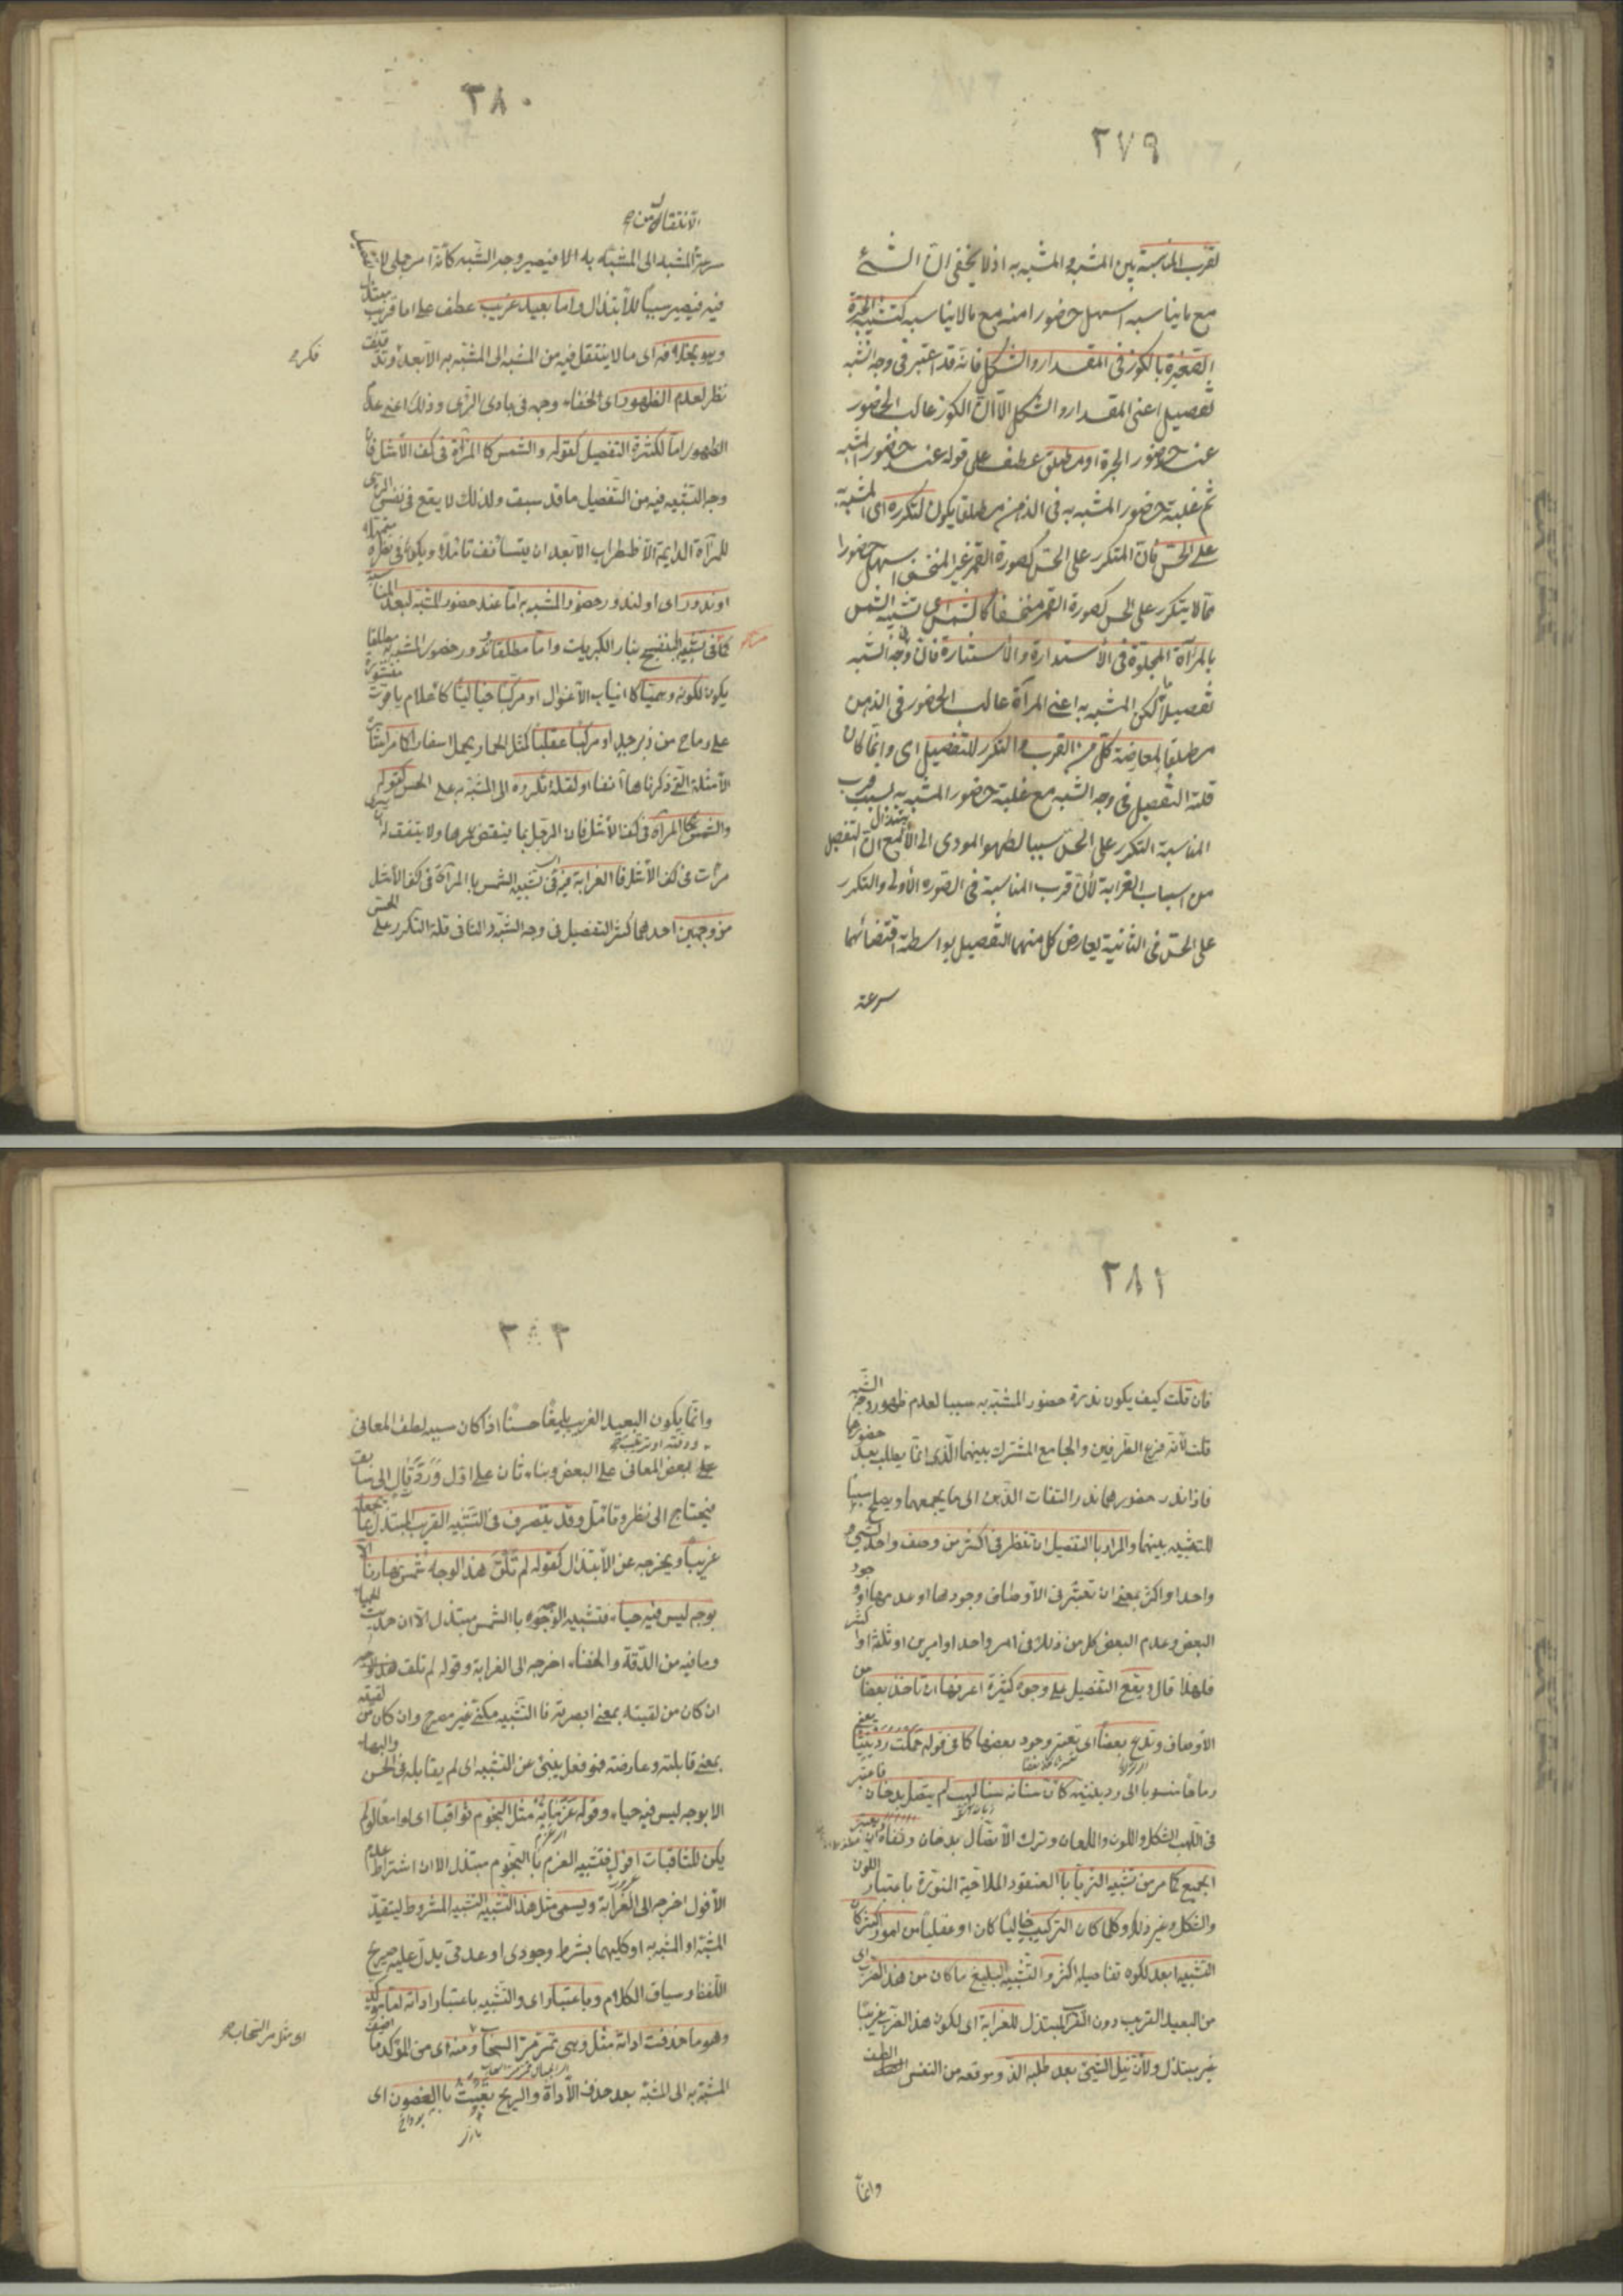 ٢٧٩
لقرب المناسبة بين المشبه والمشبه به اذ لا يخفى ان الشئ
مع ما يناسبه اسهل حضورا منه مع ما لا يناسبه كتشبيه الجرة
الصغيرة بالكوز في المقدار والشكل فانه قد اعتبر في وجه الشبه
تفصيل اعنى المقدار والشكل الا ان الكوز غالب الحضور
عند حضور الجرة او مطلق عطف على قوله عند حضور المشبه
ثم غلبة حضور المشبه به في الذهن مطلقا يكون لتكرره اى المشبه به
على الحس فان المتكرر على الحس كصورة القمر غير المنخسف اسهل حضورا
مما لا يتكرر على الحس كصورة القمر منخسفا كالشمس اى تشبيه الشمس
بالمرآة المجلوة في الاستدارة والاستنارة فان في وجه الشبه
تفصيلا ما لكن المشبه به اعنى المرآة غالب الحضور في الذهن
مطلقا لمعارضة كل من القرب والتكرر للتفصيل اى وانما كان
قلة التفصيل في وجه الشبه مع غلبة حضور المشبه به بسبب قرب
المناسبة التكرر على الحس سببا لظهوه المودى الى الابتذال مع ان التفصيل
من اسباب الغرابة لأن قرب المناسبة في الصورة الأولى والتكرر
على الحس في الثانية يعارض كل منهما التفصيل بواسطة اقتضائهما
سرعة
٣٨٠
الانتقال من
سرعة المشبه الى المشبه به الا فيصير وجه الشبه كأنه امر جملى لا
فيه فيصير سببا للابتذال واما بعيد غريب عطف على اما قريب مبتذل
وهو بخلافه اى ما لا ينتقل فيه من المشبه الى المشبه به الا بعد وتدقيق
فكر
نظر لعدم الظهور اى لخفاء وجهه في بادى الرأى وذلك اعنى عدم
الظهور اما لكثرة التفصيل كقوله والشمس كالمرآة في كف الأشل فان
وجه التشبيه فيه من التفصيل ما قد سبق ولذلك لا يقع في نفس الرائى
للمرآة الدايمة الاضطراب الا بعد ان يستأنف تأملا ويكون في نظره متمهلا
او ندور اى او لندور حضور المشبه به اما عند حضور المشبه لبعد المناسبة
كما في تشبيه البنفسج بنار الكبريت واما مطلقا وندور حضور المشبه به مطلقا
يكون لكونه وهميا كانياب الاغوال او مركبا خياليا كأعلام ياقوت منشورة
على رماح من زبرجد او مركبا عقليا كمثل الحمار يحمل اسفارا كما مر
الامثلة التى ذكرناها آنفا او لقلة تكرره اى المشبه به على الحس كقوله
والشمس كالمرآة في كف الأشل فان الرجل بما ينقضى عمرها ولا يتفق له ان يرى
مرآت في كف الأشل فا الغرابة فيه اى في تشبيه الشمس بالمرآة في كف الأشل
من وجهين احدهما كثرة التفصيل في وجه الشبه والثانى قلة التكرر على الحس
٣٨١
فان قلت كيف يكون ندرة حضور المشبه به سببا لعدم ظهور وجه الشبه
قلت لأنه فرع الطرفين والجامع المشترك بينهما الذى انما يطلب بعد حضورهما
فاذا ندر حضورهما ندر التفات الذهن الى ما يجمعهما ويصلح سببا
للتشبيه بينهما والمراد بالتفصيل ان تنظر في اكثر من وصف واحد لشئ
واحد او اكثر بمعنى ان تعتبر في الاوصاف وجودها او عدمها او وجود
البعض وعدم البعض كل من ذلك في امر واحد او امرين او ثلثة او اكثر
فلهذا قال ويقع التفصيل على وجوه كثيرة اعرفها ان تأخذ بعضا من
الأوصاف وتدع بعضا اى تعتبر وجود بعضها كما في قوله حملت ردينيا يعنى
رماحا منسوبا الى ردينية كأن سنانه سنا لهب لم يتصل بدخان فاعتبر
في اللهب الشكل واللون واللمعان وترك الاتصال بدخان ونفاه
الجميع كما مر من تشبيه الثريا بالعنقود الملاحية المنورة باعتبار اللون
والشكل وغير ذلك وكلما كان التركيب خياليا كان او عقليا من امور اكثر كان
التشبيه ابعد لكونه تفاصيله اكثر والتشبيه البليغ ما كان من هذا الضرب اى
من البعيد الغريب دون القريب المبتذل للغرابة اى لكون هذا الضرب غريبا
غير مبتذل ولأن نيل الشئ بعد طلبه الذ وموقعه من النفس الطف
وانما
وانما يكون البعيد الغريب بليغا حسنا اذا كان سببه لطف المعانى
ودقته او ترتيب
على بعض المعانى على البعض وبناء ثان على اول ورد تال الى سابق
فيحتاج الى نظر وتأمل وقد يتصرف في التشبيه القريب المبتذل بما يجعله
غريبا ويخرجه عن الابتذال كقوله لم تلق هذا الوجه شمس نهارنا الا
بوجه ليس فيه حياء فتشبيه الوجوه بالشمس مبتذل الا ان حديث الحياء
وما فيه من الدقة والخفاء اخرجه الى الغرابة وقوله لم تلق هذا الوجه
ان كان من لقيته بمعنى ابصرته فا التشبيه مكنى غير مصرح وان كان من لقيته
بمعنى قابلته وعارضته فهو فعل ينبئ عن التشبيه اى لم يقابله في الحسن والبهاء
الا بوجه ليس فيه حياء وقوله عزماته مثل النجوم ثواقبا اى لوامعا لو لم
يكن للثاقبات افول فتشبيه العزم با النجوم مبتذل الا ان اشتراط عدم
الأفول اخرجه الى الغرابة ويسمى مثل هذا التشبيه التشبيه المشروط ليتقيد
المشبه او المشبه به او كليهما بشرط وجودى او عدمى يدل عليه صريح
اللفظ وسياق الكلام وباعتبار اى والتشبيه باعتبار اداته اما مؤكد
وهو ما حذفت اداته مثل وهى تمر مر السحاب ومنه اى من المؤكد ما اضيف
اى مثل مر السحاب
المشبه به الى المشبه بعد حذف الأداة والريح تعبث با الغصون اى